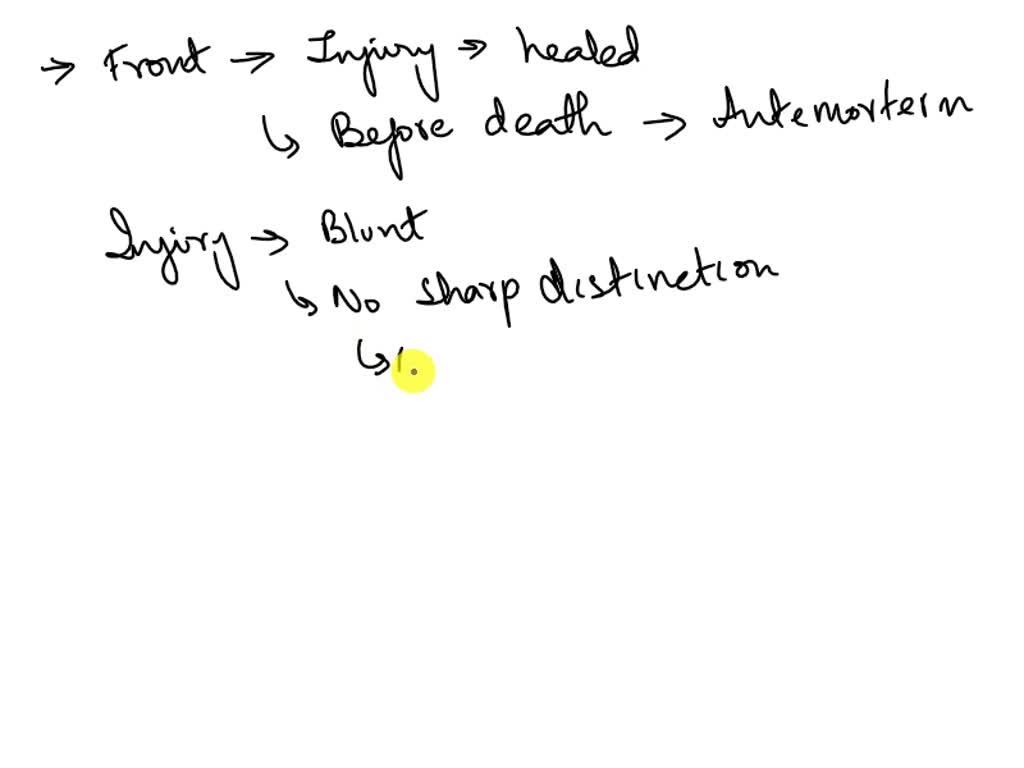 → Front → Injury → healed
↳ Before death → Antemortem
Injury → Blunt
↳ No sharp distinction
↳